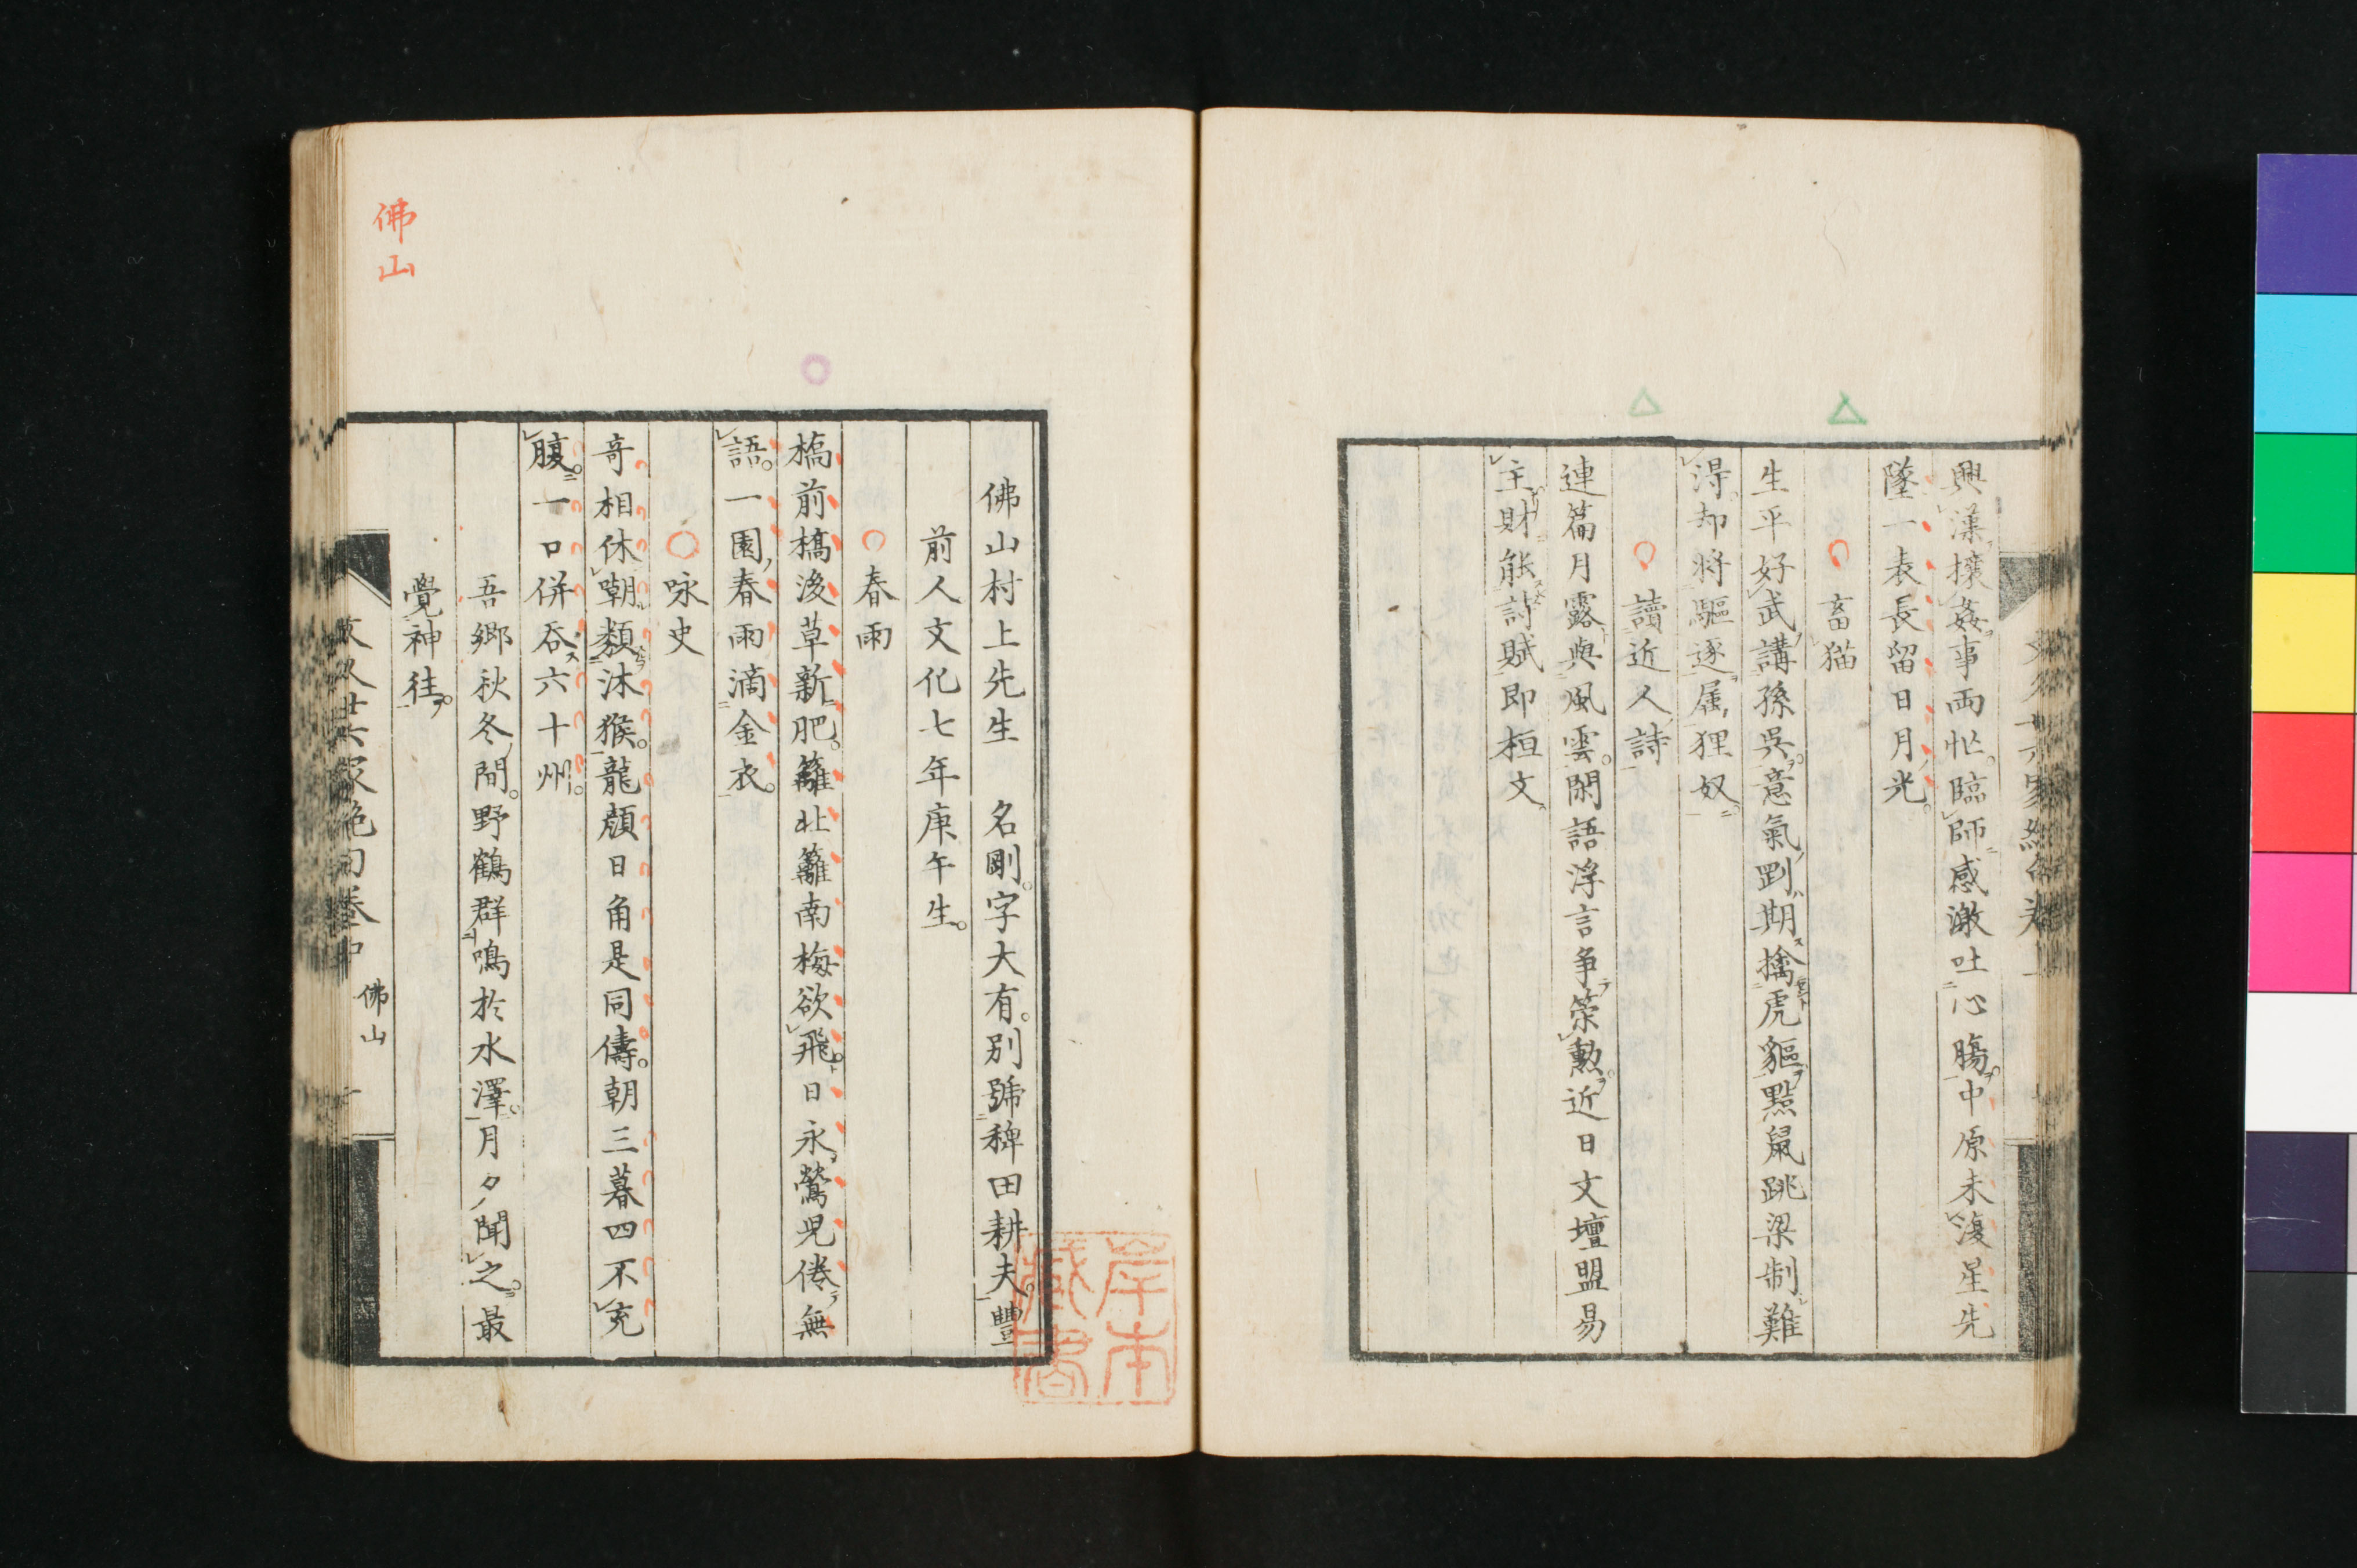 興漢攘姦事両忙臨師感激吐心腸中原未復星先
墜一表長留日月光
畜猫
生平好武講孫呉意氣剴期擒虎貙黠鼠跳梁制難
得却将驅逐属狸奴
讀近人詩
連篇月露與風雲閑語浮言争策勲近日文壇盟易
主財能詩賦即桓文
佛山村上先生 名剛字大有别號稗田耕夫豐
前人文化七年庚午生
春雨
橋前橋後草新肥籬北籬南梅欲飛日永鶯児倦無
語一園春雨滴金衣
咏史
奇相休嘲類沐猴龍顔日角是同儔朝三暮四不充
腹一口併呑六十州
吾郷秋冬間野鶴群鳴於水澤月夕聞之最
覺神往
文久廿六家絶句巻中
佛山
佛山
岸本
藏書